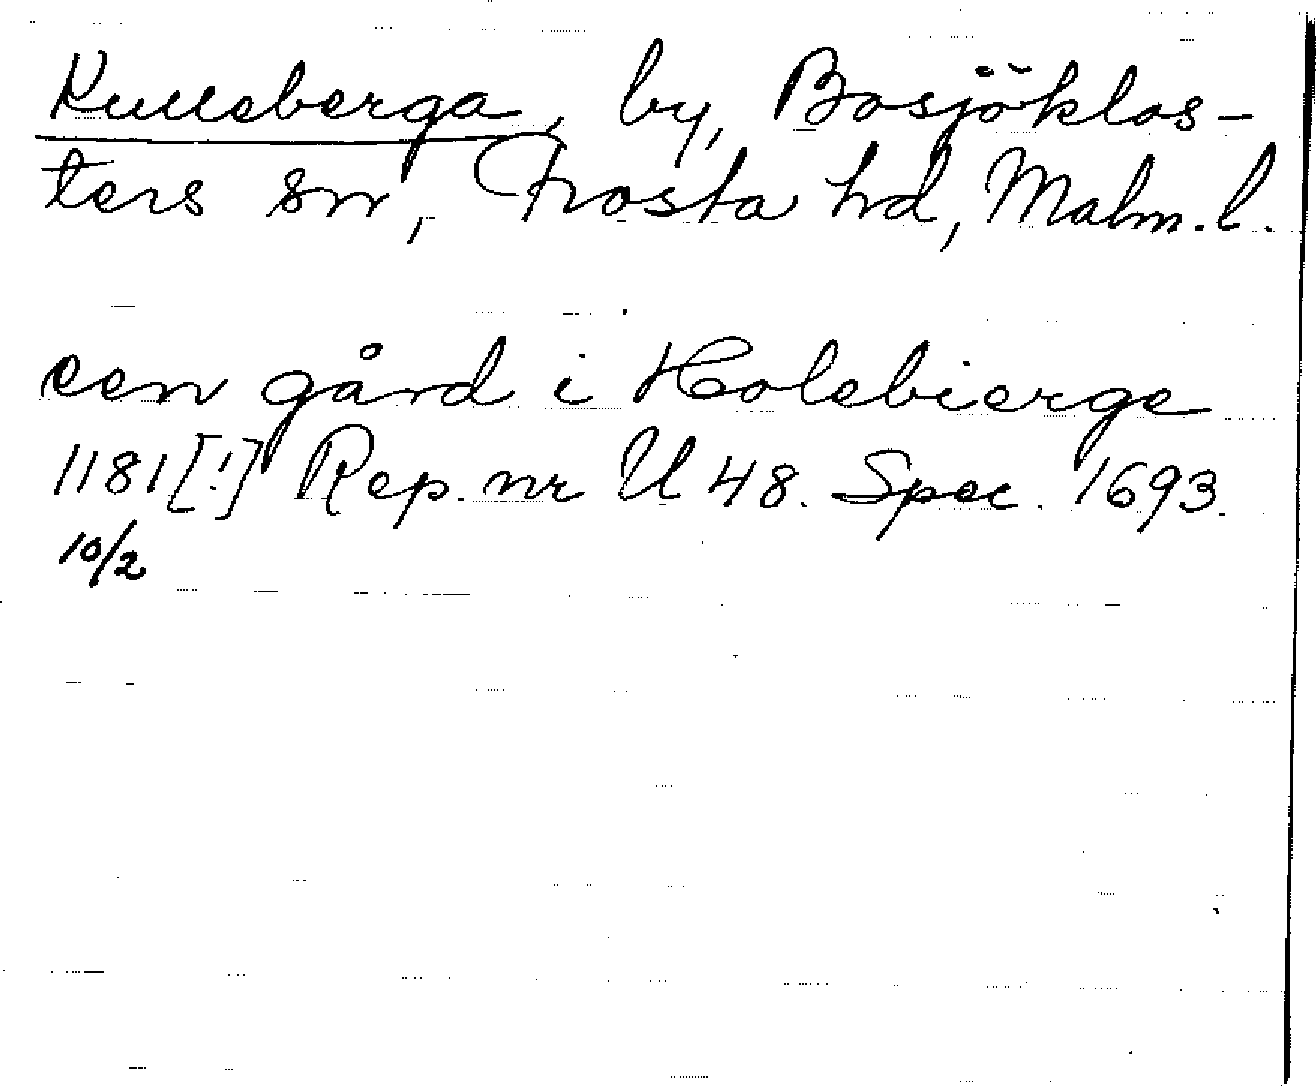 Kulleberga, by, Bosjöklos-
ters sn, Frosta hd, Malm. l.
een gård i Holebierge
1181[!] Rep. nr U 48. Spec. 1693.
10/2